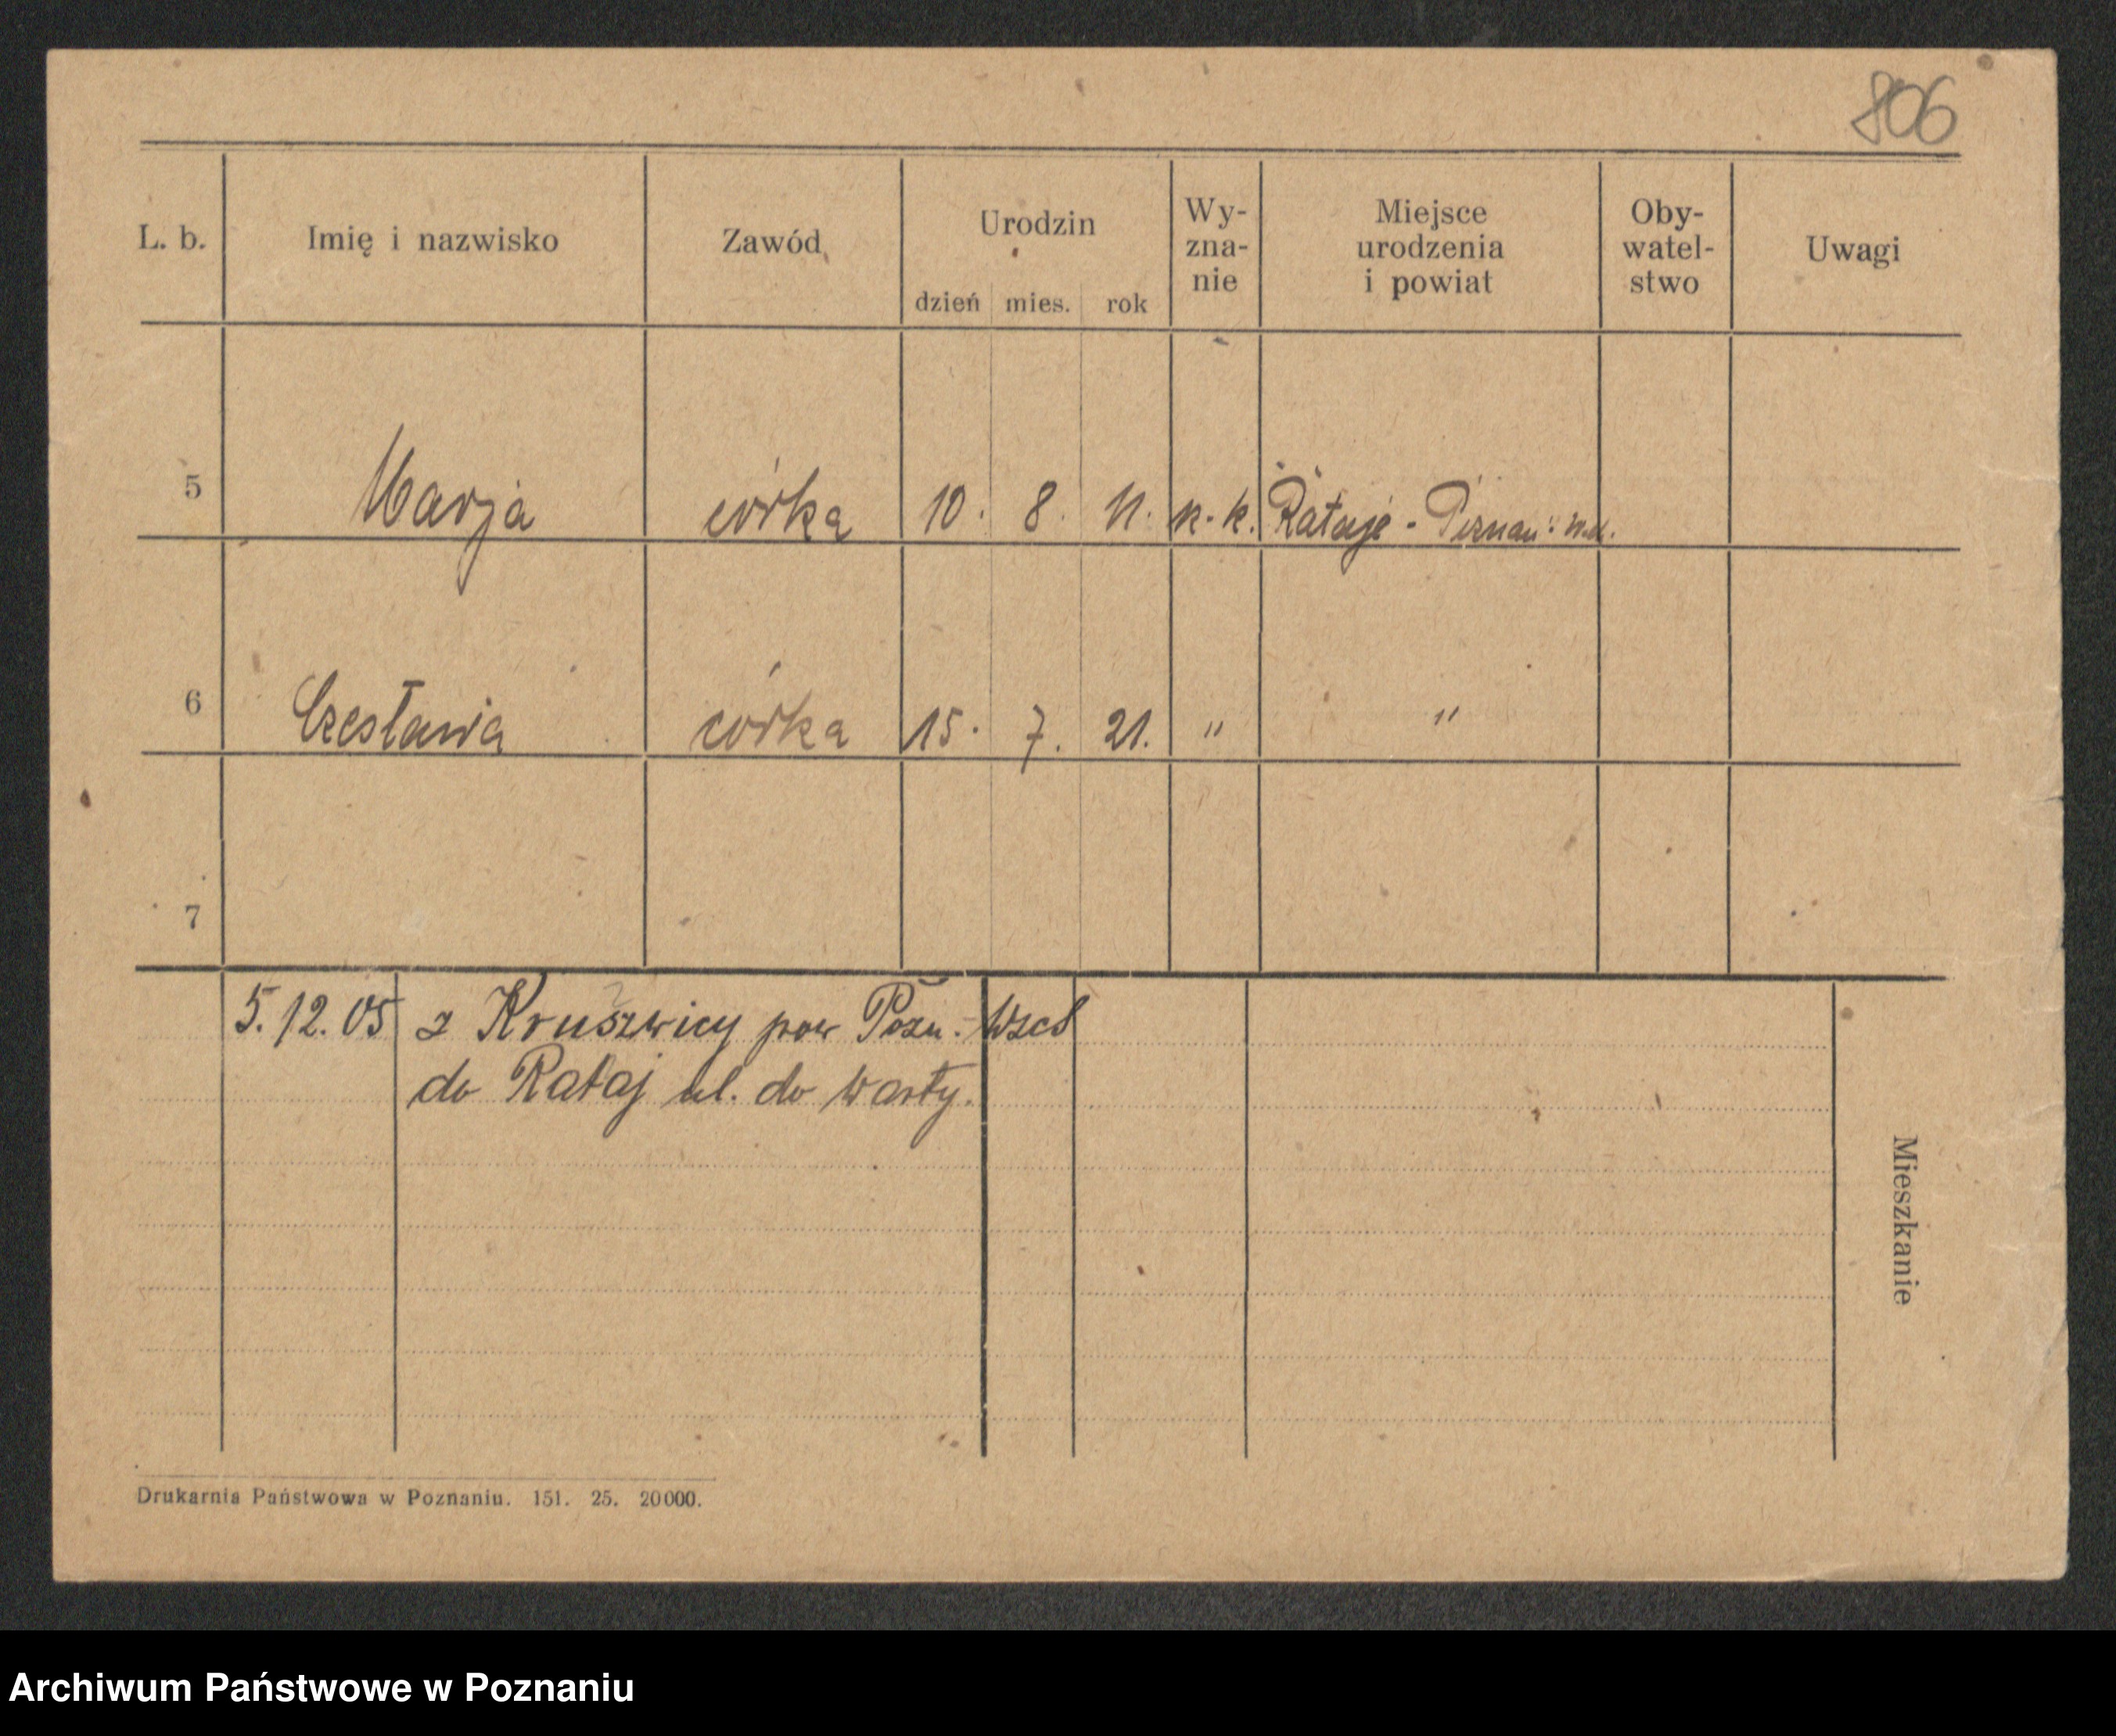 806
L. b. Imię i nazwisko Zawód Urodzin Wy-
zna-
nie Miejsce
urodzenia
i powiat Oby-
watel-
stwo Uwagi
dzień mies. rok
5 Marja córka 10. 8. 11. r. k. Rataje - Poznań
6 Czesława córka 15. 7. 21. " "
7
5. 12. 05 z Kruszwicy pow Pozn.-Wsch
do Rataj ul. do Warty.
Mieszkanie
Drukarnia Państwowa w Poznaniu. 151. 25. 20000.
Archiwum Państwowe w Poznaniu